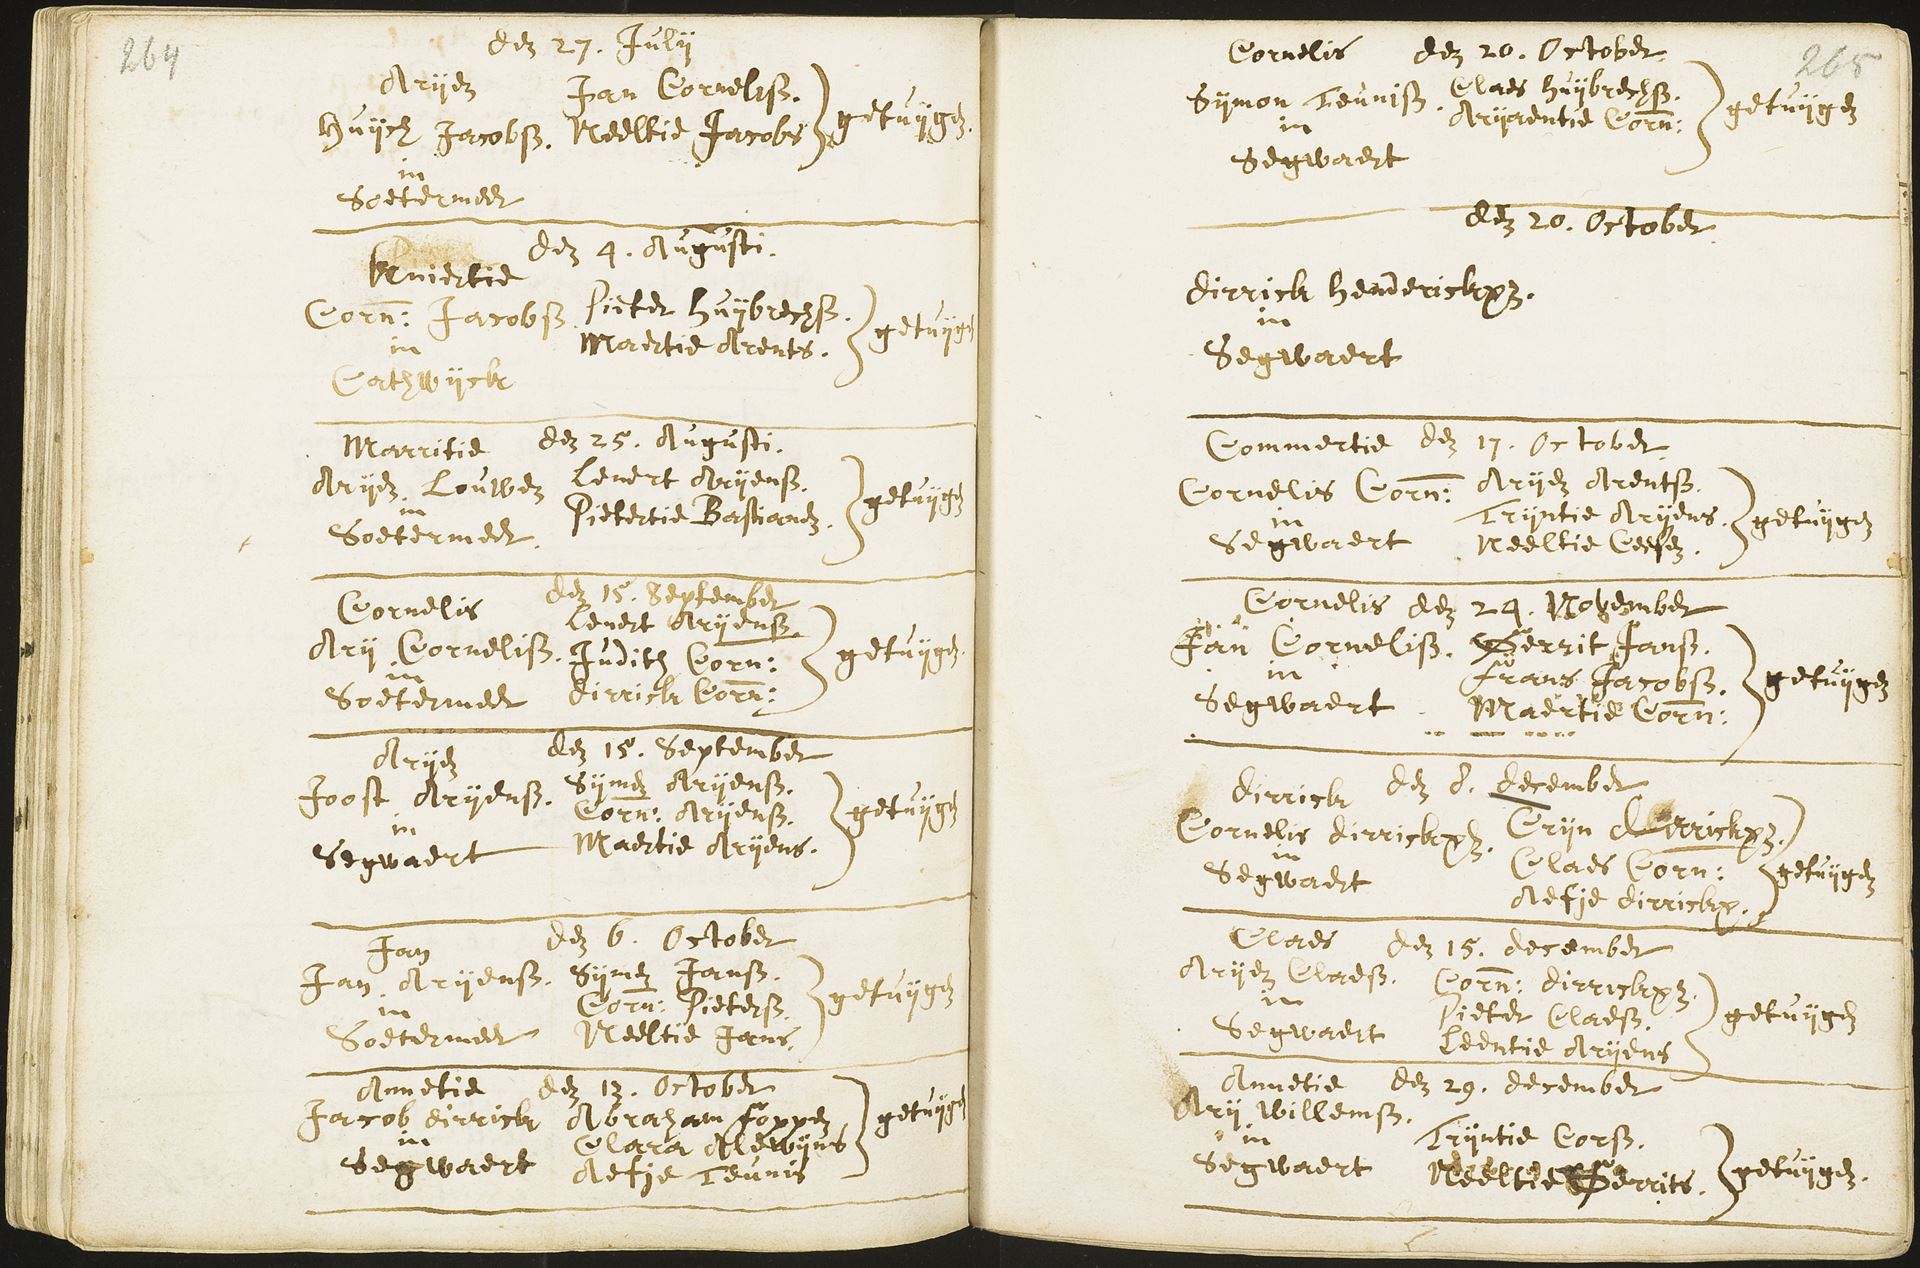 264
den 27. Julij
Arijen
Jan Cornelisz.
Huijch Jacobsz. Neeltie Jacobs getuijgen.
in
Soetermeer
den 4. Augusti.
Kniertie
Corn: Jacobsz. Pieter Huijbrechsz.
Maertie Arents. getuijgen
in
Cathwijck
Marritie den 25. Augusti.
Arijen Louwen Lenert Arijensz.
Pietertie Bastiaens. getuijgen
in
Soetermeer.
den 15. September
Cornelis Lenert Arijensz.
Arij Cornelisz. Judith Corn: getuijgen.
in
Soetermeer dirrick Corn:
Arijen den 15. September
Joost Arijensz. Sijmen Arijensz.
Corn: Arijensz. getuijgen
in
Segwaert Maertie Arijens.
Jan den 6. October
Jan Arijensz. Sijmen Jansz.
Corn: Pietersz. getuijgen
in
Soetermeer Neeltie Jans.
Annetie den 13. October
Jacob dirrick Abraham foppen getuijgen
in Clara Alewijns
Segwaert Aefje Teunis
265
Cornelis den 20. October.
Sijmon Teunisz. Claes huijbrechsz.
Arijaentie Corn: getuijgen
in
Segwaert
den 20. October
dirrick henderickxz.
in
Segwaert
Commertie den 17. October
Cornelis Corn: Arijen Arentsz.
Trijntie Arijens. getuijgen
in
Segwaert Neeltie Ceesen.
Cornelis den 24. November
Jan Cornelisz. Gerrit Jansz.
in frans Jacobsz. getuijgen
Segwaert Maertie Corn:
dirrick den 8. december
Cornelis dirrickxz. Crijn dirrickxz.
in
Segwaert Claes Corn: getuijgen
Aefje dirrickx.
Claes den 15. december
Arijen Claesz. Corn: dirrickxz.
in Pieter Claesz. getuijgen
Segwaert Leentie Arijens
Annetie den 29. december
Arij willemsz.
in Trijntie Corsz.
Segwaert Neeltie Gerrits. getuijgen.